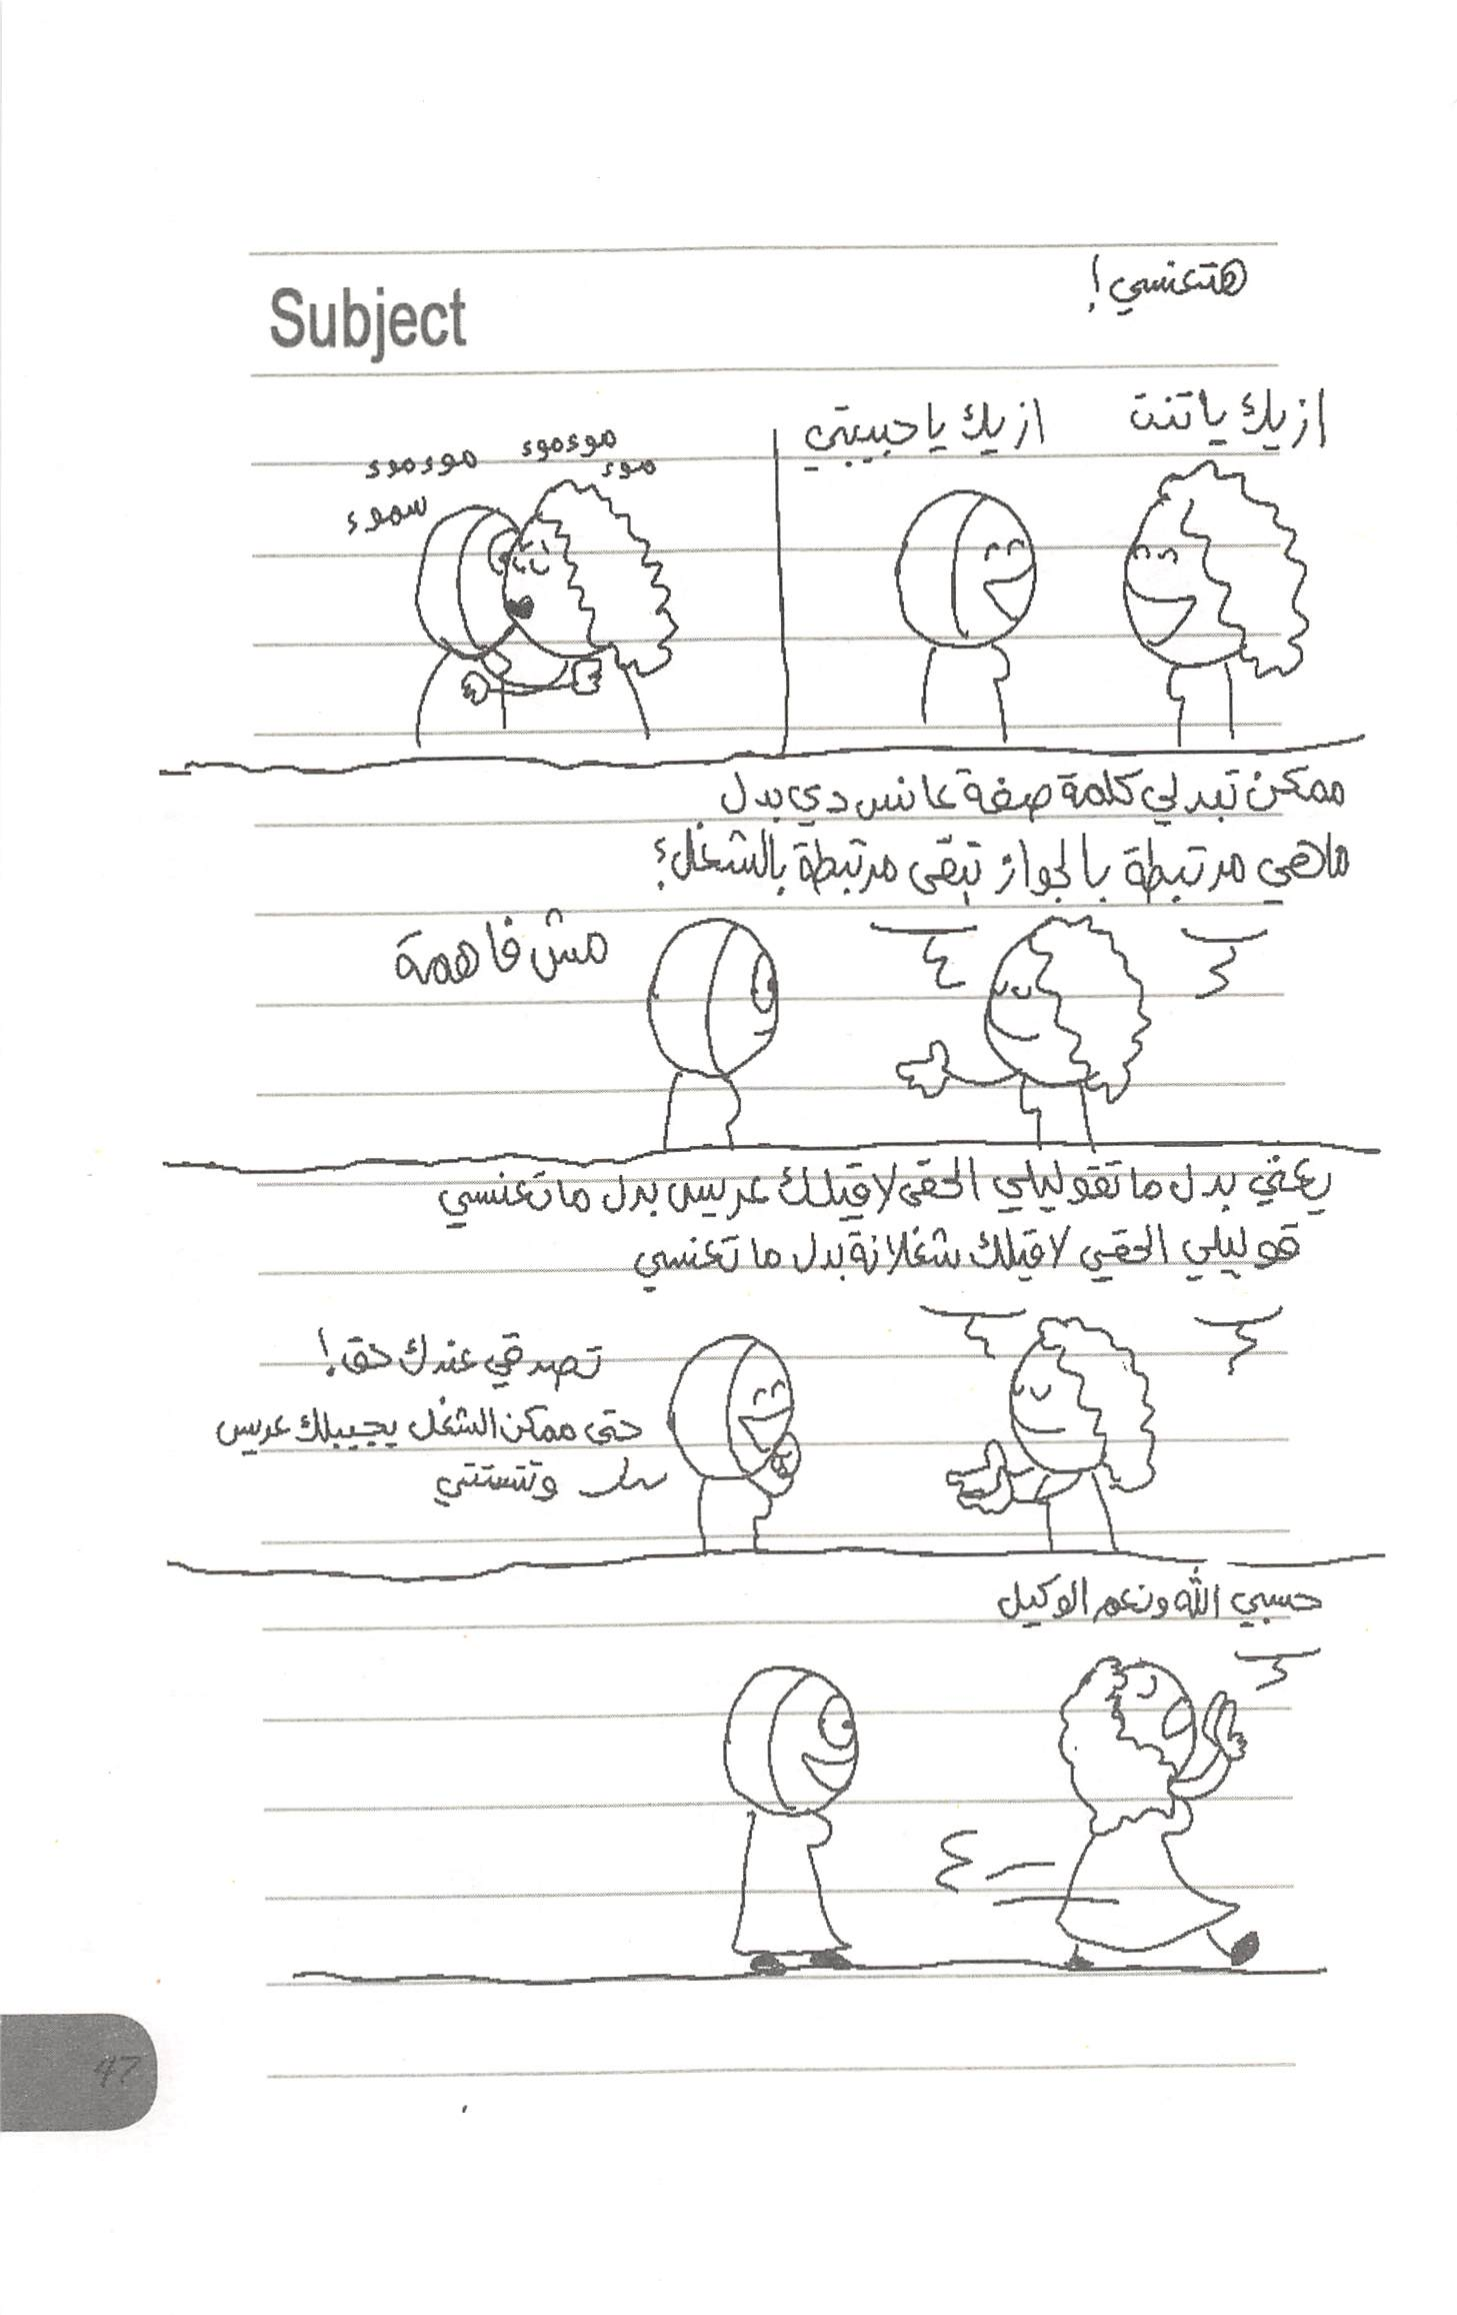 هتعنسي!
Subject
ازيك يا تنت
ازيك يا حبيبتي
موءموء
موء
موءموء
سموء
ممكن تبدلي كلمة صفة عانس دي بدل
ماهي مرتبطة بالجواز تبقى مرتبطة بالشغل؟
مش فاهمة
يعني بدل ما تقوليلي الحقي لاقيلك عريس بدل ما تعنسي
قوليلي الحقي لاقيلك شغلانة بدل ما تعنسي
تصدقي عندك حق!
حتى ممكن الشغل يجيبلك عريس
وتتستتي
حسبي الله ونعم الوكيل
47